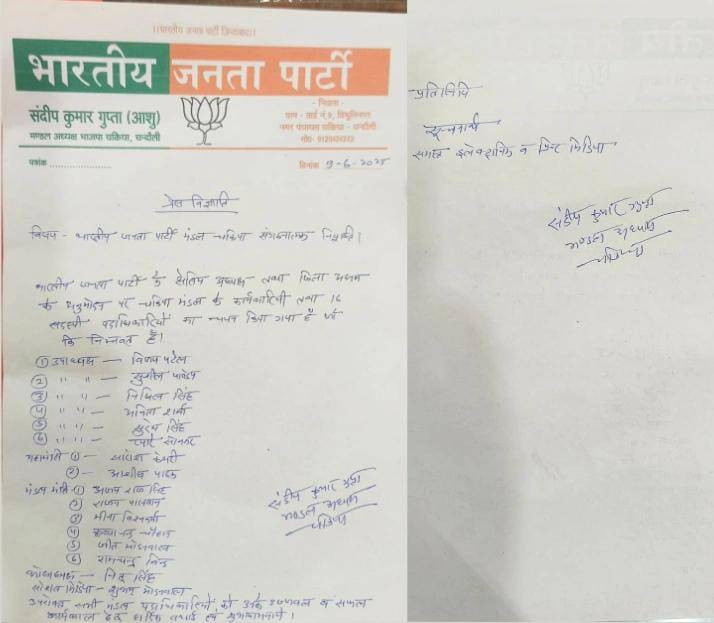 ।।भारतीय जनता पार्टी जिन्दाबाद।।
भारतीय जनता पार्टी
संदीप कुमार गुप्ता (आशु)
मण्डल अध्यक्ष भाजपा चकिया, चन्दौली
- निवास -
नगर पंचायत चकिया - चन्दौली
पत्रांक
दिनांक 9-6-2025
प्रेस विज्ञप्ति
विषय - भारतीय जनता पार्टी मंडल चकिया
भारतीय जनता पार्टी के क्षेत्रिय अध्यक्ष तथा जिला अध्यक्ष
के अनुमोदन पर चकिया मंडल के कार्यकारिणी तथा 16
सदस्यी पदाधिकारियों का चयन किया गया है जो
कि निम्नवत है।
① उपाध्यक्ष — विजय पटेल
② " " — सुशील पाण्डेय
③ " " — निखिल सिंह
④ " " — शर्मा
⑤ " " — सिंह
⑥ " " — सोनकर
महामंत्री ① — केशरी
② — आशीष पाठक
मंडल मंत्री ① सिंह
② राजन पासवान
③ मीना विश्वकर्मा
④ चौहान
⑤
⑥ रामचन्द्र बिन्द
कोषाध्यक्ष — सिंह
सोशल मिडिया — शुभम
उपरोक्त सभी मंडल पदाधिकारियों को उनके उज्जवल व सफल
कार्यकाल हेतु हार्दिक बधाई एवं शुभकामनायें।
संदीप कुमार गुप्ता
मण्डल अध्यक्ष
चकिया
प्रतिलिपि
सूचनार्थ
समस्त इलेक्ट्रानिक व प्रिन्ट मिडिया
संदीप कुमार गुप्ता
मण्डल अध्यक्ष
चकिया